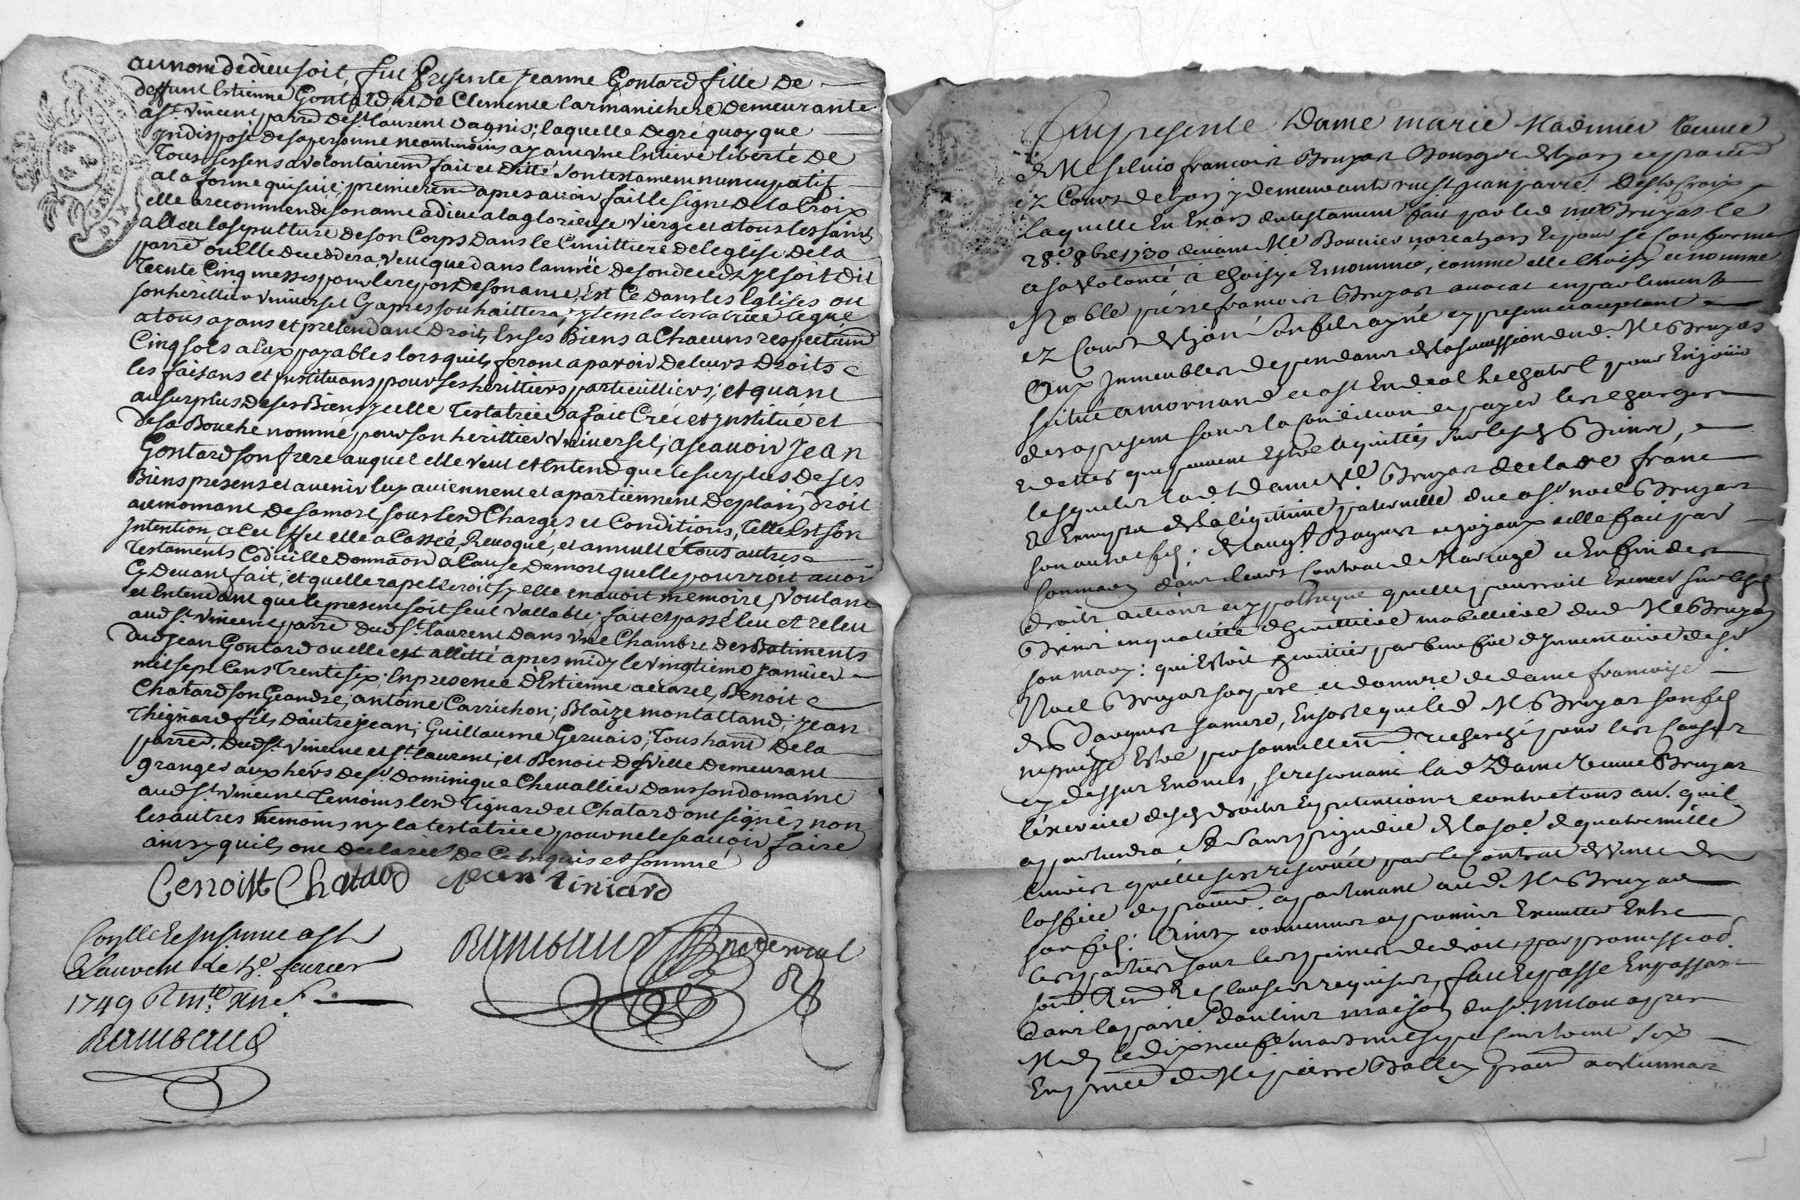 au nom de dieu soit, fut presente jeanne Gontard fille de
deffunt Estienne Gontard et de Clemence Larmanichere demeurante
a st. vincent parre de st. laurent dagnis; laquelle de gré quoy que
jndisposé de sa personne neantmoins ayant vne Entiere liberté de
Tous ses sens a volontairemt fait et ditté son testament nuncupatif
a la forme qui suit; premieremt apres avoir faitte signe de la Croix
elle a recommendé son ame a dieu a la glorieuse vierge et a tous les saints
allou la sepulture de son Corps dans le Cimittiere de leglise de la
parre ou Elle deceddera, veut que dans lannëe de son decedz jl soit dit
Trente Cinq messes pour le repos de son ame, Est Ce dans les Eglises ou
son herittier vniversel Cyapres souhaittera, jtem la testatrice legue
a tous ayans et pretendant Droits En ses Biens a Chacuns respectivmt
Cinq sols a Eux payables lorsquils feront aparoir de leurs Droits
les faisans et jnstituans pour ses herittiers particulliers; et quant
au surplus de ses Biens jcelle Testatrice a fait Créé et jnstitue et
de sa Bouche nommé, pour son herittier vniversel; a scauoir Jean
Gontard son frere auquel elle veut et Entend que le surplus de ses
Biens presens et avenir luy aviennent et apartiennent de plain Droit
au momant de sa mort sous lesd Charges et Conditions, Telle Est son
Intention a Cet Effet elle a Cassée, Revoqué, et annullé tous autres
Testaments Codicille donnaõn a Cause de mort quelle pourroit avoir
Cy Devant fait, et quelle rapelleroit sy elle en auoit memoire, voulant
et Entendant que le present soit seul vallable; fait et passé leu et releu
aud st. vincent parre dud st. laurent dans vne Chambre des Batiments
dud jean Gontard ou elle est allitté apres midy le vingtieme janvier
mil sept Cens Trente six. En presence d'Estienne accarel, Benoit
Chatard son Gendre, antoine Carrichon; Blaize montalland; jean
Thignard fils d'autre jean; Guillaume Gervais; Tous habt de la
parre dud st. vincent et st. laurent, et Benoit deville demeurant
granger aux hers de sr dominique Cheuallier dans son domaine
aud st. vincent Temoins lesd Tignard et Chatard ont signés non
les autres temoins ny la testatrice pour ne le scavoir faire
ainsy quils ont declarée de Ce Enquis et sommé
Benoist Chatard Jean Tiniard
RAMBAUD
Laurent le 4e. feurier
1749
RAMBAUD
Fut presente Dame marie Madinier veuve
de Me Silvio francois Bruyas Bourgeois de Lyon et procureur
ez Cours de Lyon y demeurante rue st jean parre ste Croix
laquelle En Execõn du testament fait par led me Bruyas le
28e 8bre 1730 devant Me Bonnier nore a Lyon Et pour se Conformer
a sa volonté a choisy et nommé, comme elle Choisy et nomme
Noble pierre francois Bruyas avocat en parlement
ez Cours de Lyon son fils ayné cy present acceptant
aux jmmeubles dependant de la succession dud. Me Bruyas
situé a mornand et a st Endeol le chatel pour En jouir
des a present sous la condition de payer les charges
et dettes qui peuvent Estre
lesquels lad Dame Ve Bruyas declare franc
Et Exempts de la legitime paternelle due a sr noel Bruyas
son autre fils, de l'augt. Bagues et joyaux a elle fait par
son mary dans leurs Contrat de Mariage et Enfin des
droits actions et ypotheque quelle pourroit Exercer sur lesd
Biens en qualité d'herittiere mobilliaire dud. Me Bruyas
son mary; qui Estoit herittier par benefice d'Inventaire de sr
Noel Bruyas son pere et donnaire de dame francoise
sa mere, En sorte que led. Me Bruyas son fils
ne puisse Estre personnellemt recherché pour les Causes
cy dessus Enoncés, se reservant lad Dame veuve Bruyas
l'exercice de ses droits et pretentions contre tous au. quil
appartiendra et sans prejudice de la som de quatre mille
livres quelle sest reservée par le Contrat de vente de
loffice de procureur appartenant aud. Me Bruyas
son fils; ainsy convenu et promis Executter Entre
les parties sous les peines de droit, par promesses obl.
soum Renon Et Clauses requises, fait Et passé En passant
dans la parre d'aulins maison du sr milou apres
Midy le dix neuf mars mil sept Cent trente six
En presence de Me pierre Balley